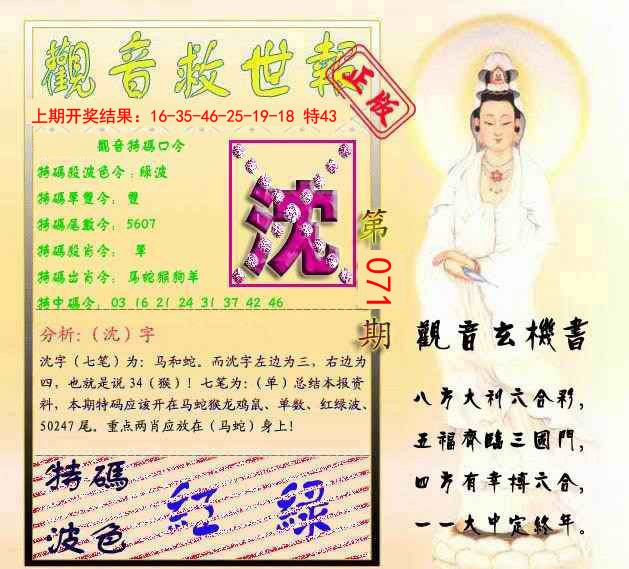 觀音救世報
正版
上期开奖结果：16-35-46-25-19-18 特43
觀音特碼口令
特碼段波色令：綠波
特碼單雙令： 雙
特碼尾數令： 5607
特碼段肖令： 單
特碼出肖令： 馬蛇猴狗羊
特中碼令： 03 16 21 24 31 37 42 46
沈
第071期
分析:（沈）字
沈字（七笔）为：马和蛇。而沈字左边为三，右边为
四，也就是说 34（猴）！七笔为:（单）总结本报资
料，本期特码应该开在马蛇猴龙鸡鼠、单数、红绿波、
50247 尾。重点两肖应放在（马蛇）身上！
特碼
波色
紅 綠
觀音玄機書
八方大利六合彩，
五福齊臨三國門，
四方有幸搏六合，
一一大中定終年。